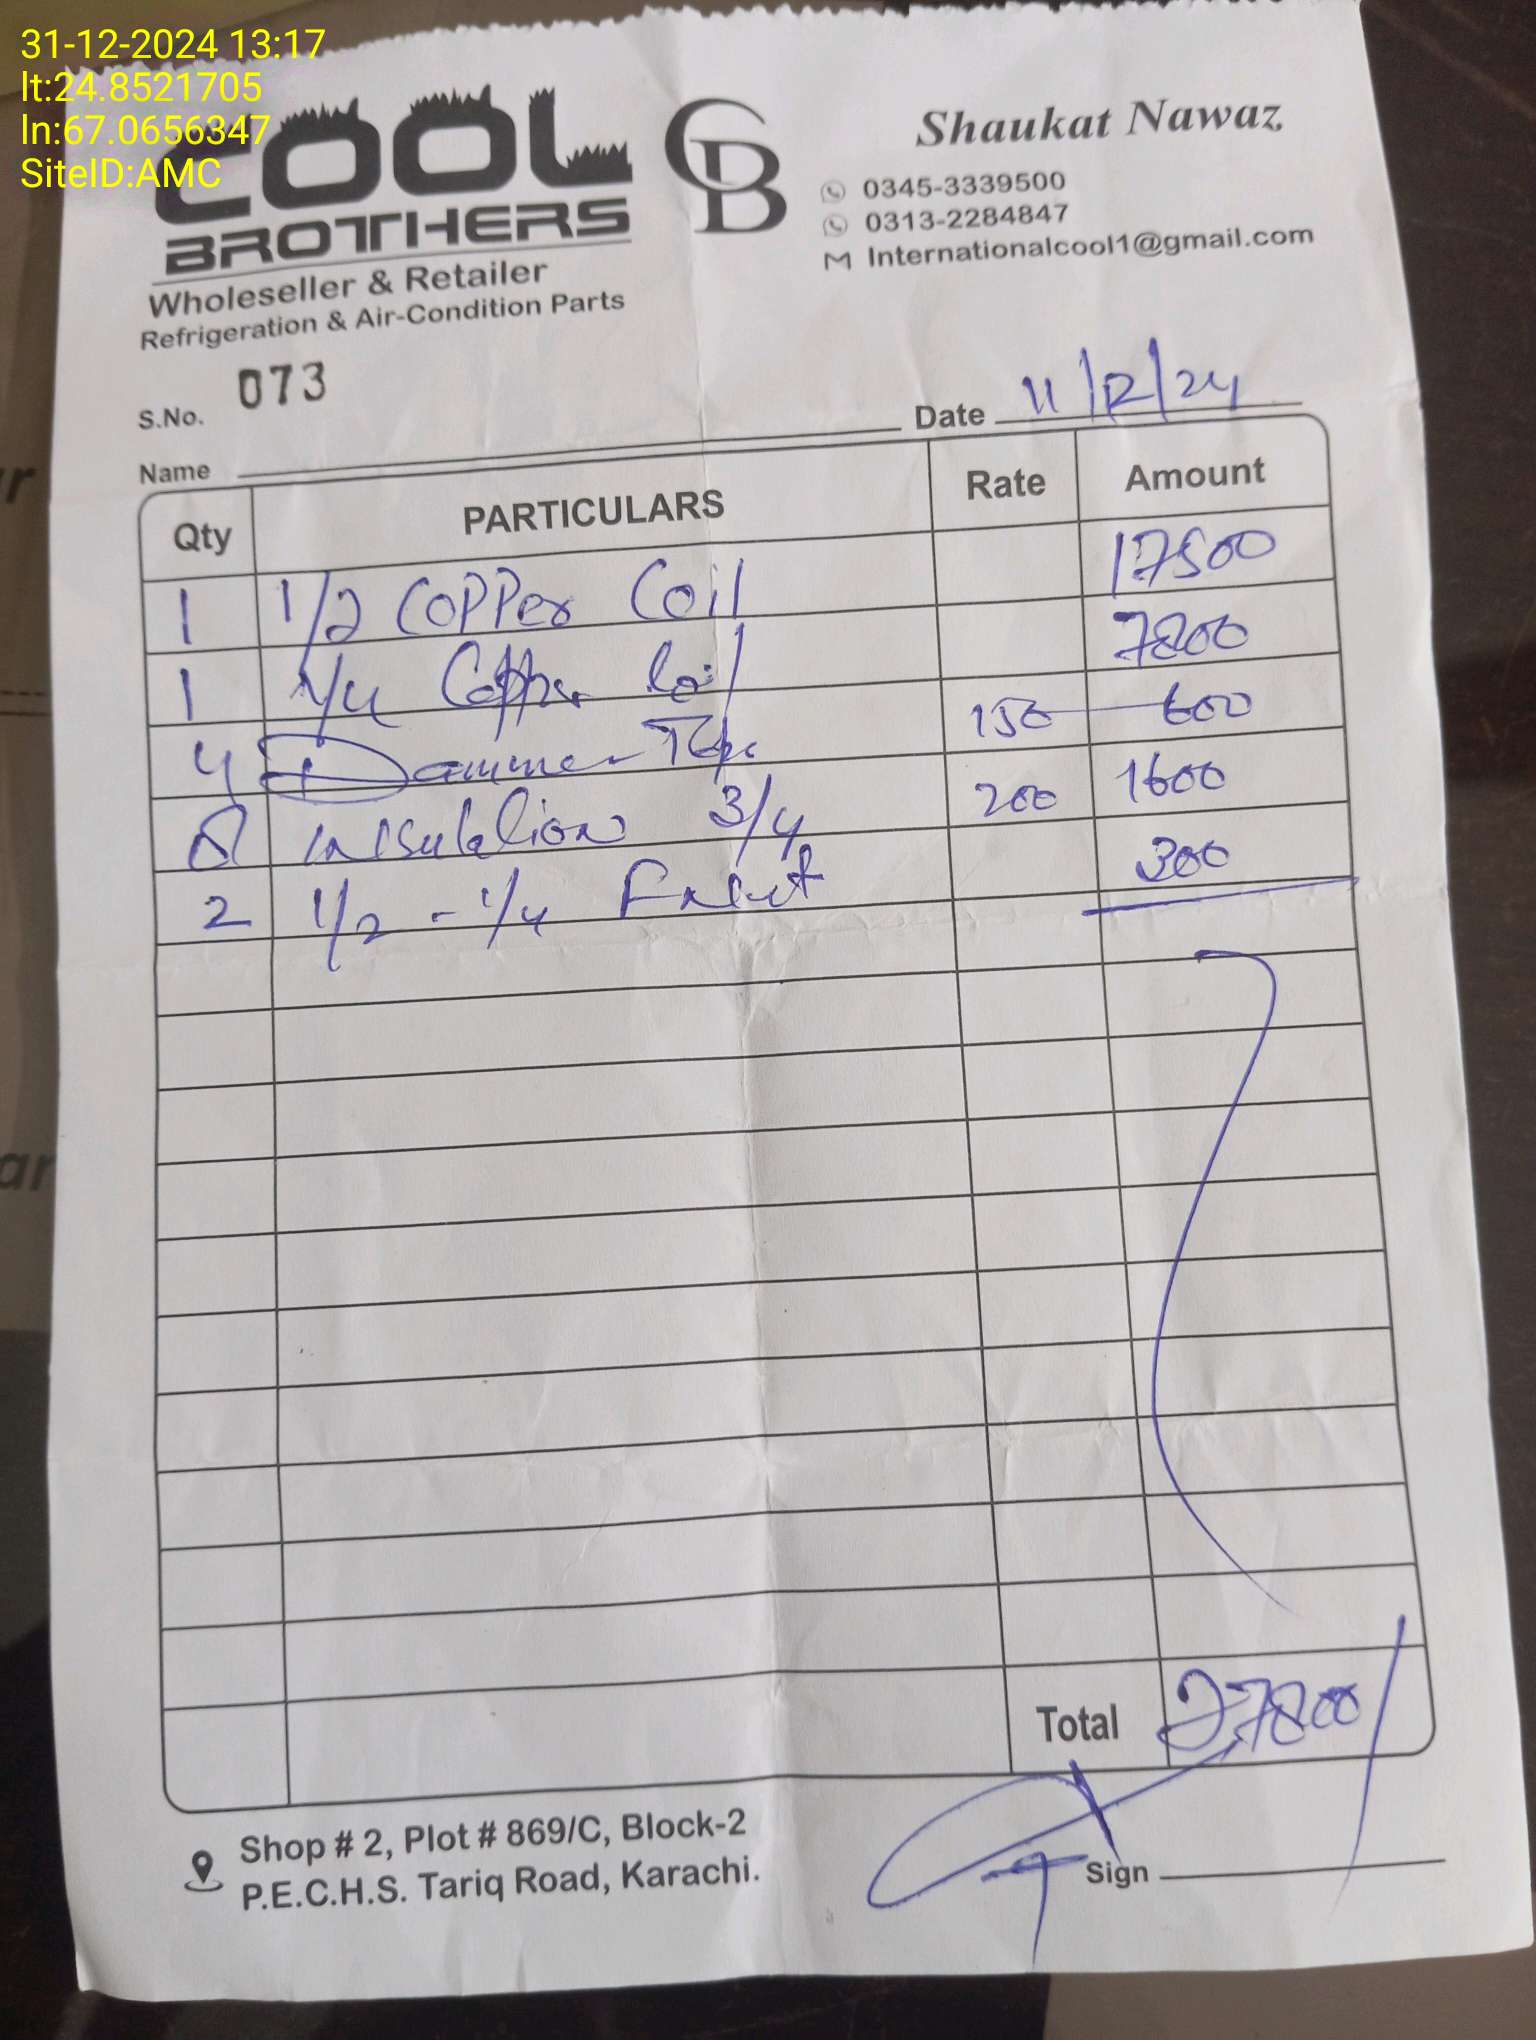 31-12-2024 13:17
lt:24.8521705
ln:67.0656347
SiteID:AMC
COOL
BROTHERS
CB
Wholeseller & Retailer
Refrigeration & Air-Condition Parts
Shaukat Nawaz
0345-3339500
0313-2284847
Internationalcool1@gmail.com
S.No. 073
Date 11/12/24
Name
Qty PARTICULARS Rate Amount
1 1/2 Copper Coil 17500
1 1/4 Copper Coil 7800
4 Dammer Tape 150 600
8 insulation 3/4 200 1600
2 1/2 - 1/4 300
Total 27800
Shop # 2, Plot # 869/C, Block-2
P.E.C.H.S. Tariq Road, Karachi.
Sign
ar